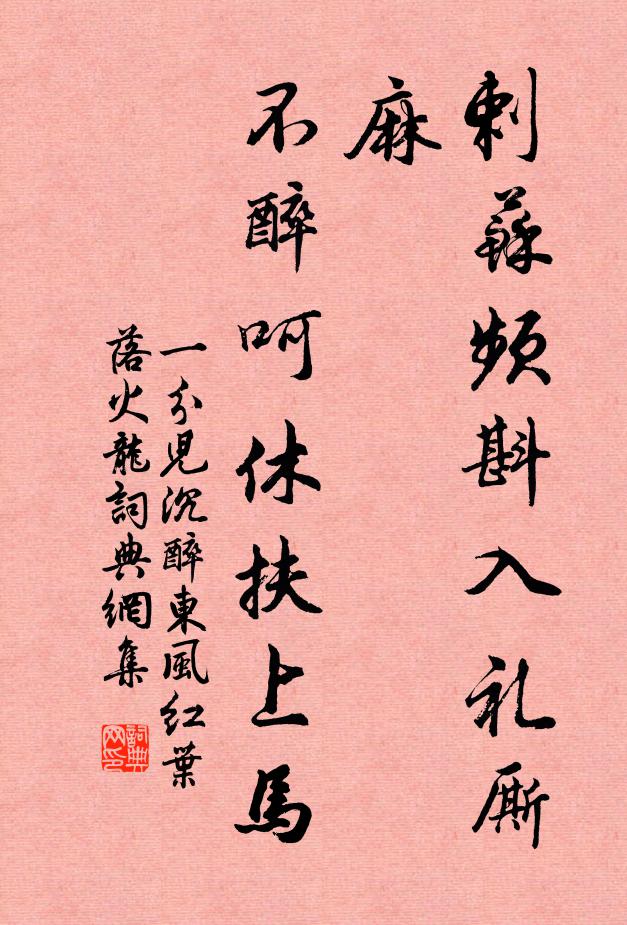 刺蘇頻斟入礼厮
麻
不醉呵休扶上馬
一分児沉醉東風紅葉
落火龍詞典網集
詞典
网印